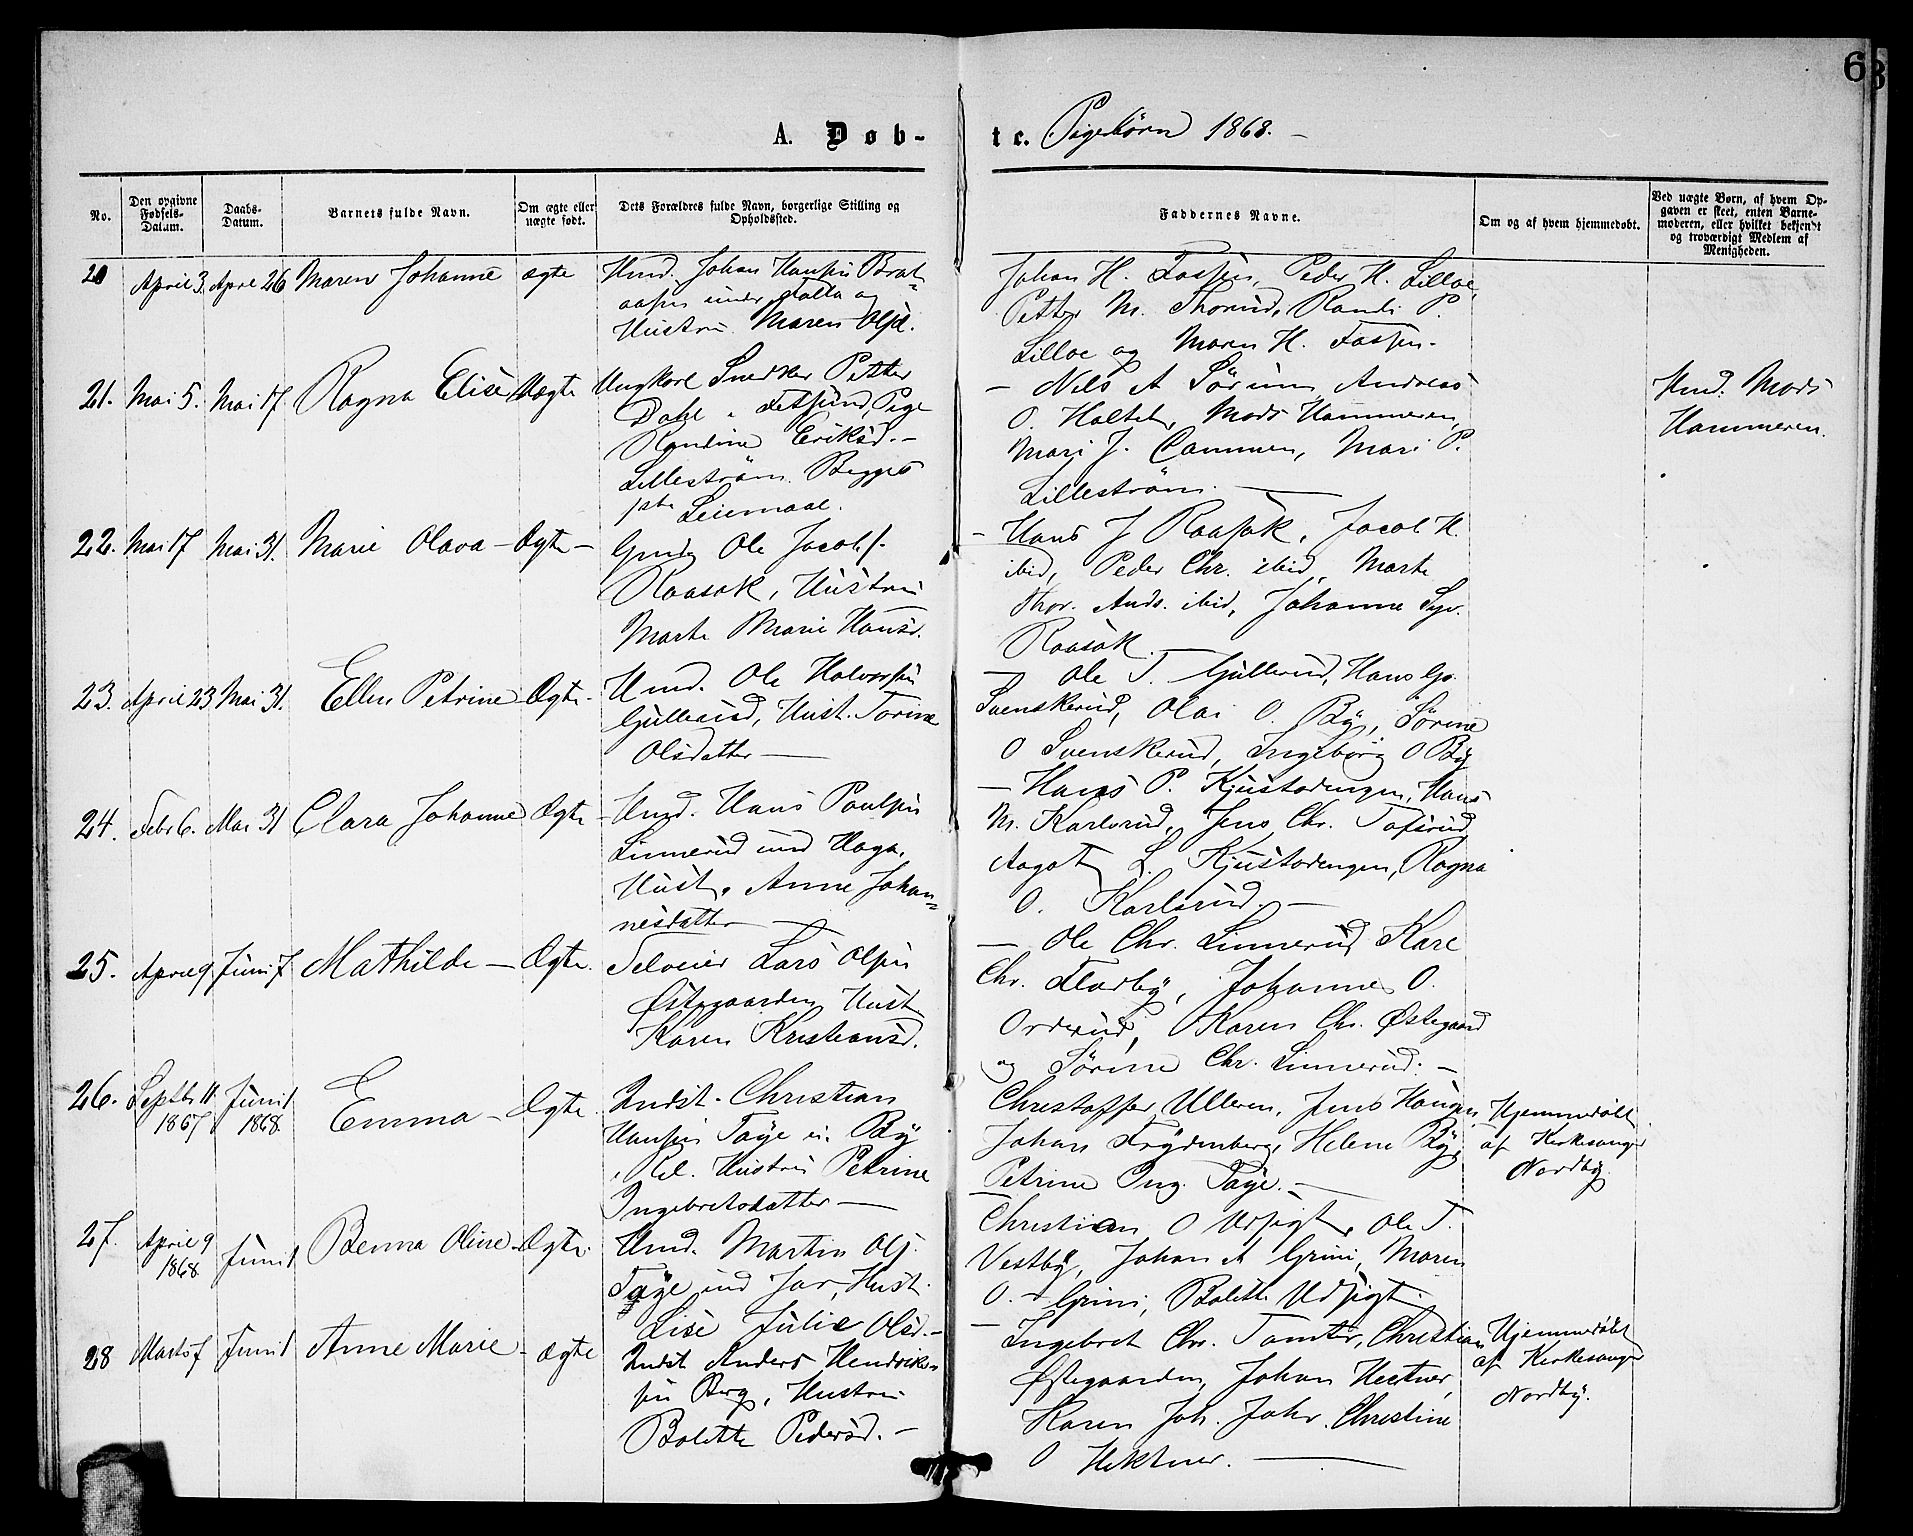 6
A. Døb-
te. Pigebørn 1868. -
No.
Den opgivne Fødsels-Datum.
Daabs-Datum.
Barnets fulde Navn.
Om ægte eller uægte født.
Dets Forældres fulde Navn, borgerlige Stilling og Opholdssted.
Faddernes Navne.
Om og af hvem hjemmedøbt.
Ved uægte Børn, af hvem Opgaven er skeet, enten Barnemoderen, eller hvilket bekjendt og troværdigt Medlem af Menigheden.
20 April 3. April 26 Maren Johanne ægte
Hmd. Johan Hansen Brat-
aasen under Falla og
Hustru Maren Olsd.
Johan H. Fossen, Peder H. Lilloe,
Petter M. Thorud, Randi P.
Lilloe og Maren H. Fossen -
21. Mai 5. Mai 17. Ragna Elise Uægte
Ungkarl Snedker Petter
Dahl i Fetsund, Pige
Randine Eriksd. -
Lillestrøm. Begges
1ste Leiemaal.
- Nils A Sørum Andreas
O. Holtet, Mads Hammeren,
Mari J. Cammen, Mari P.
Lillestrøm. -
Hmd. Mads
Hammeren.
22. Mai 17 Mai 31. Marie Olava - Ægte -
Gmd Ole Jacobs.
Raasok, Hustru
Marte Marie Hansd.
- Hans J Raasok, Jacob H.
ibid, Peder Chr. ibid, Marte
Thor. Ands. ibid, Johanne Syv.
Raasok. -
23. April 23 Mai 31. Ellen Petrine Ægte -
Hmd. Ole Halvorsen
Gullerud, Hust. Torine
Olsdatter -
- Ole T. Gullerud, Hans Go.
Svenskerud, Olai O. By, Sørine
O Svenskerud, Ingeborg O By
24. Febr 6. Mai 31 Clara Johanne Ægte -
Hmd. Hans Paulsen
Linnerud und Haga,
Hust. Anne Johan-
nesdatter -
- Hans P. Kjustadengen, Hans
M. Karlsrud, Jens Chr. Tofsrud,
Aagot L. Kjustadengen, Ragna
O. Karlsrud. -
25. April 9 Juni 7 Mathilde - Ægte.
Selveier Lars Olsen
Østegaarden Hust
Karen Kristiansd.
- Ole Chr. Linnerud Kare
Chr. Fladby, Johannes O.
Orderud, Karen Chr. Østegaard
og Sørine Chr. Linnerud. -
26. Septbr 11. 1867 Juni 1 1868. Emma - Ægte
Indst. Christian
Hansen Taje ei. By
, Rel. Hustru Petrine
Ingebretsdatter -
Christoffer Ulleren, Jens Haugen,
Johan Frydenberg, Helene By,
Petrine Ing. Taje. -
Hjemmedøbt
af Kirkesanger
Nordby.
27. April 9 1868 Juni 1 Benna Oline - Ægte.
Hmd. Martin Ols.
Taje und Jar, Hust.
Lise Julie Olsd. -
Christian O Udsigt, Ole T.
Vestby, Johan A Grini, Maren
O. Grini, Bolette Udsigt.
28 Marts 7 Juni 1 Anne Marie - ægte
Indst Anders Hendrik-
sen Berg, Hustru
Bolette Pedersd. -
- Ingebret Chr. Tomter, Christian
Østegaarden, Johan Hektner,
Karen Joh. Jahr. Christine
O Hektner. -
Hjemmedøbt
af Kirkesanger
Nordby.